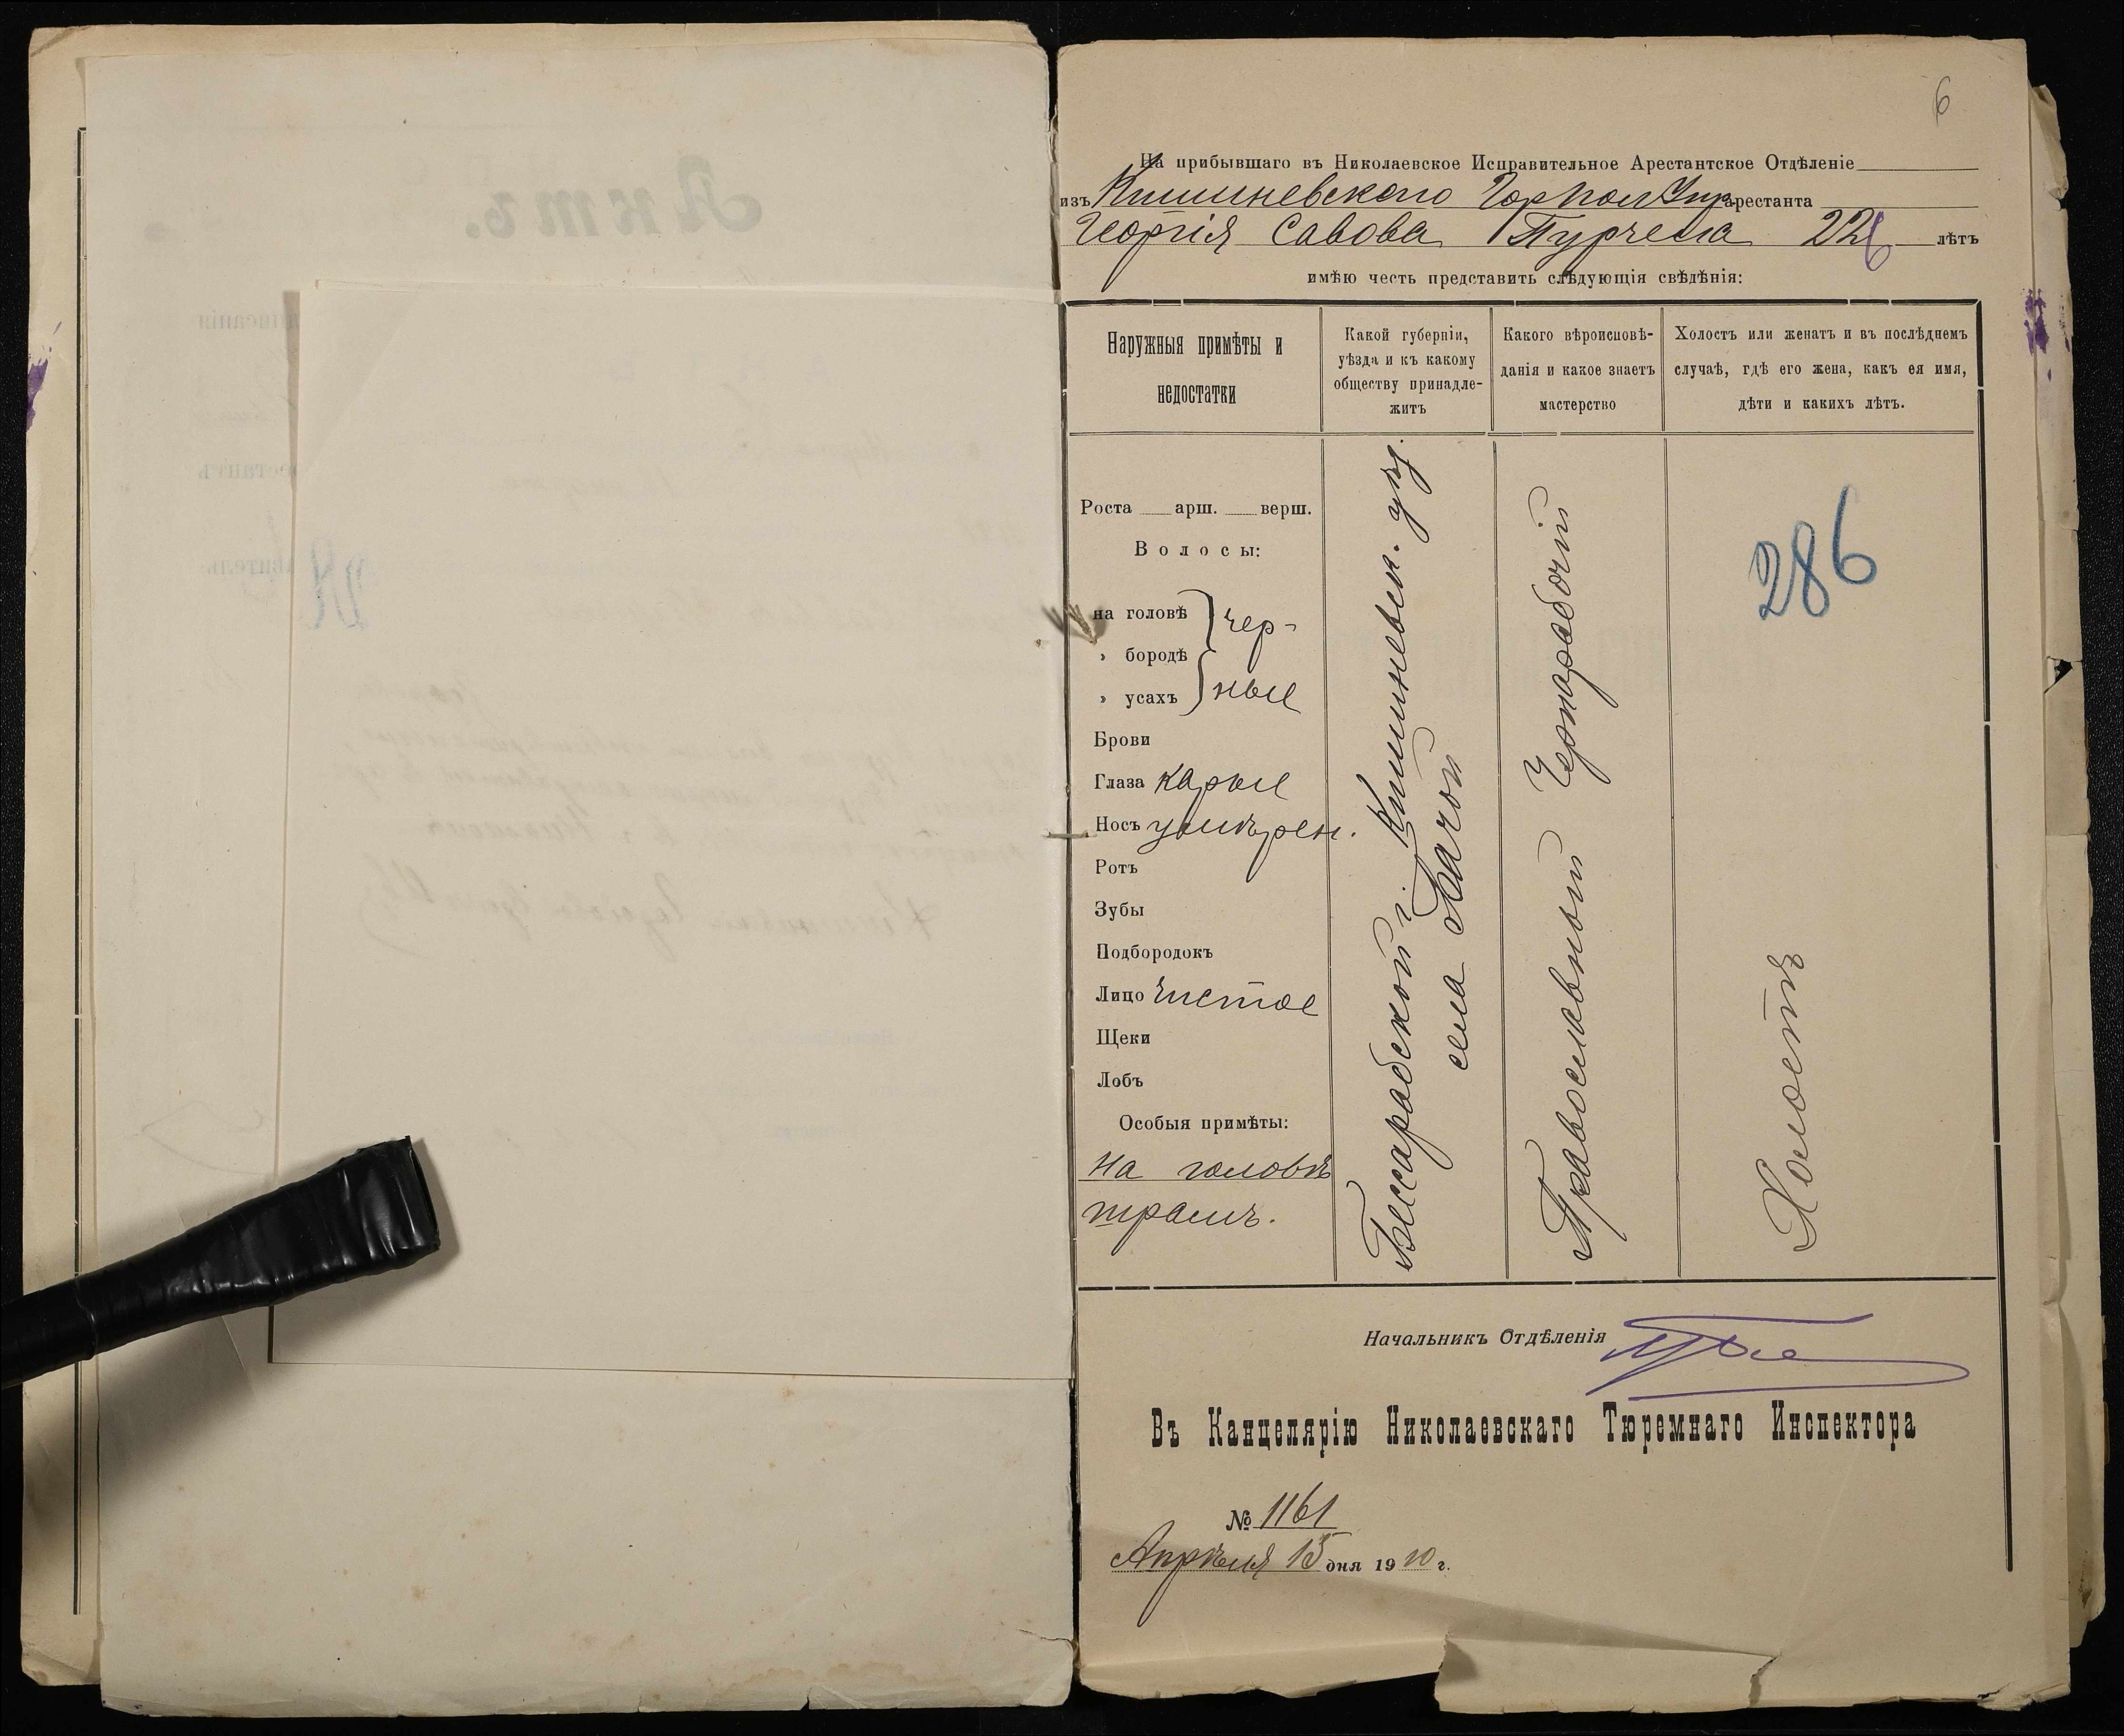 6
На прибывшаго въ Николаевское Исправительное Арестантское Отдѣленіе
изъ Кишиневскаго Гор Пол Упр арестанта
Георгія Савова Пурчела 226 лѣтъ
имѣю честь представить слѣдующія свѣдѣнія:
Наружныя примѣты и
недостатки
Какой губерніи,
уѣзда и къ какому
обществу принадле-
житъ
Какого вѣроисповѣ-
данія и какое знаетъ
мастерство
Холостъ или женатъ и въ послѣднемъ
случаѣ, гдѣ его жена, какъ ея имя,
дѣти и какихъ лѣтъ.
Роста арш. верш.
Волосы:
на головѣ чер-
» бородѣ
» усахъ ные
Брови
Глаза карые
Носъ умѣрен.
Ротъ
Зубы
Подбородокъ
Лицо чистое
Щеки
Лобъ
Особыя примѣты:
на головѣ
шрамъ.
Бессарабской г. Кишиневск. уѣз.
села Бачой
Православный Чернорабочій
286
Холостъ
Начальникъ Отдѣленія
Въ Канцелярію Николаевскаго Тюремнаго Инспектора
№ 1161
Апрѣля 15 дня 1910 г.
Актъ.